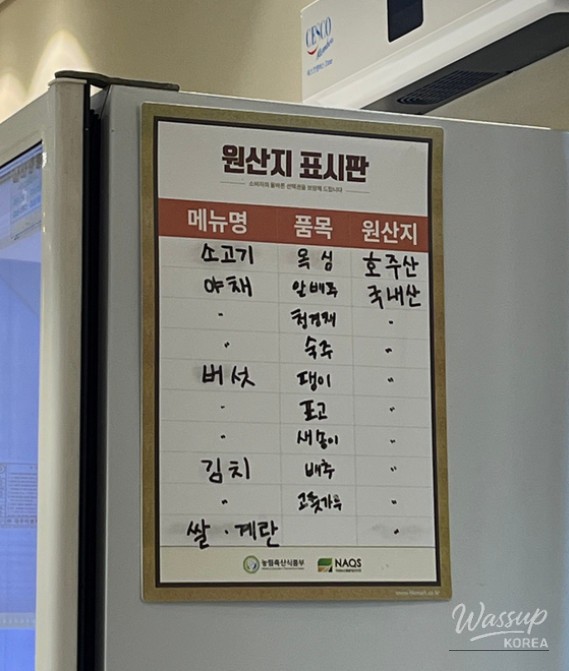 CESCO
Members
원산지 표시판
소비자의 올바른 선택권을 보장해 드립니다
메뉴명 품목 원산지
소고기 목심 호주산
야채 알배추 국내산
" 청경채 "
" 숙주 "
버섯 팽이 "
" 표고 "
" 새송이 "
김치 배추 "
" 고춧가루 "
쌀 · 계란 "
농림축산식품부 NAQS
Wassup
KOREA